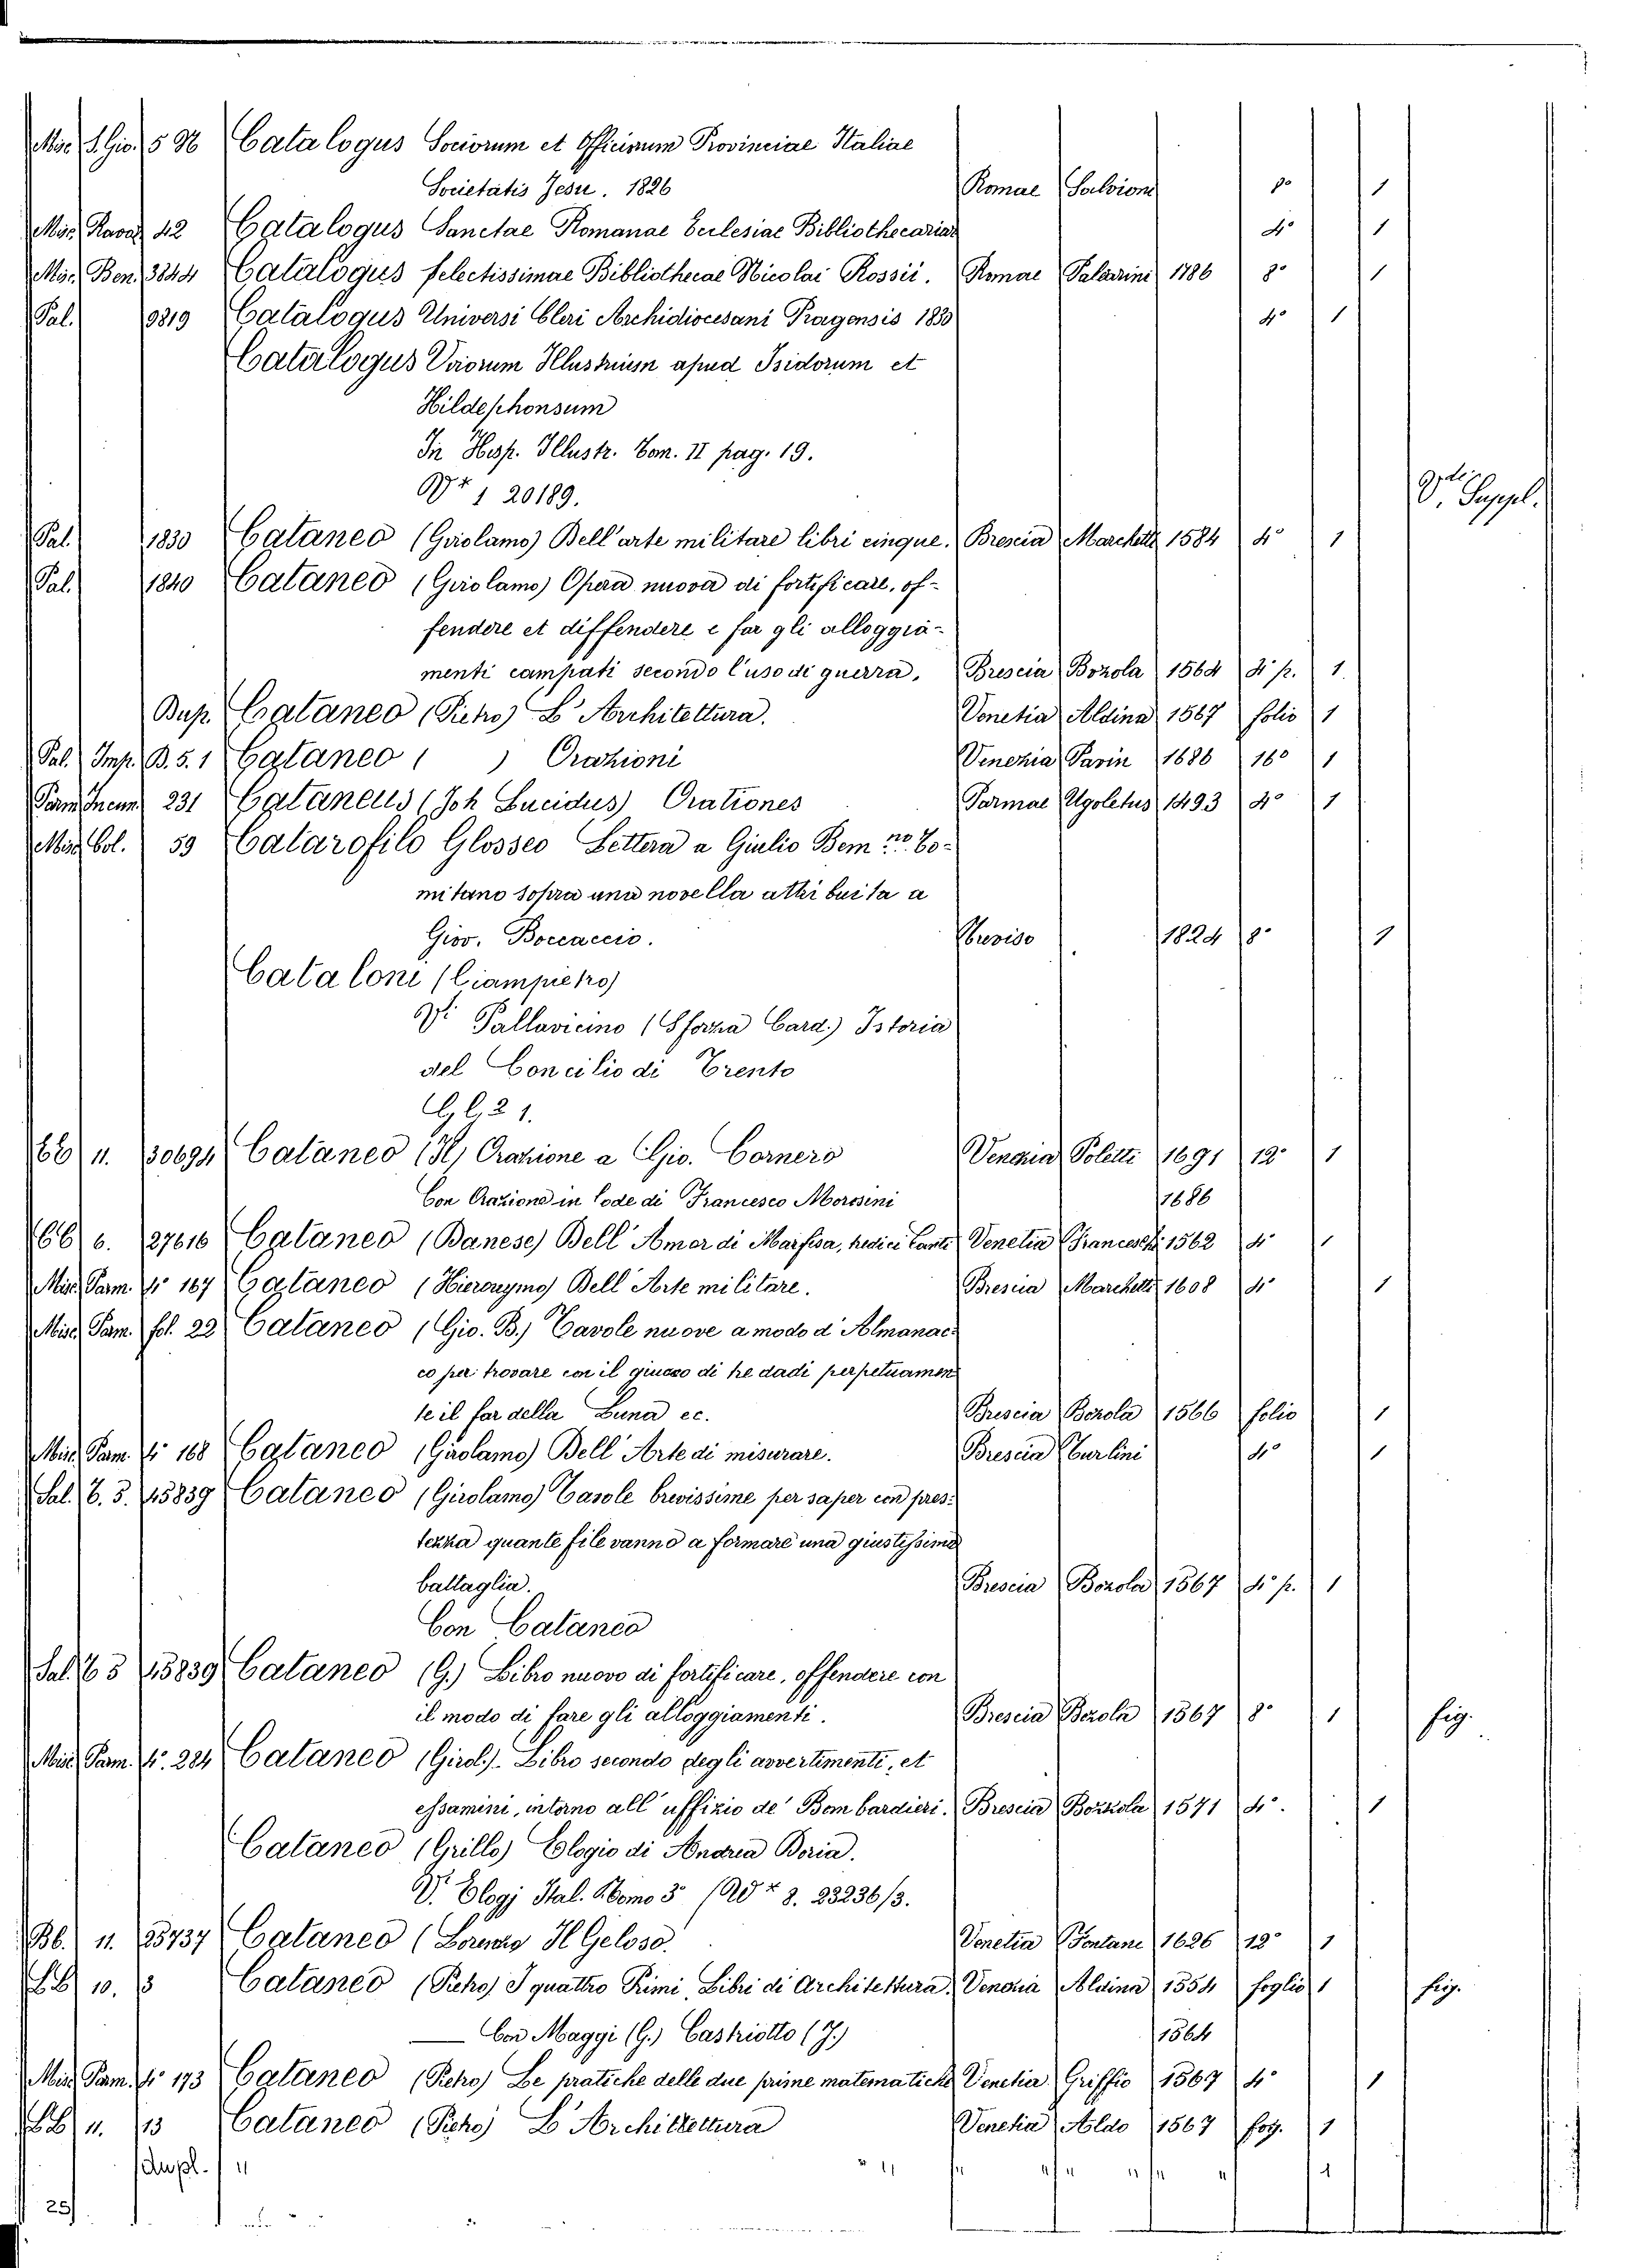 Misc. S. Gio. 5 96 Catalogus Sociorum et Officiorum Provinciae Italiae
Societatis Jesu. 1826 Romae Salvioni 8° 1
Misc. Ravas 42 Catalogus Sanctae Romanae Ecclesiae Bibliothecarior 4° 1
Misc. Ben. 3244 Catalogus selectissimae Bibliothecae Nicolai Rossii. Romae Palearini 1786 8° 1
Pal. 9819 Catalogus Universi Cleri Archidiocesani Pragensis 1830 4° 1
Catalogus Virorum Illustrium apud Isidorum et
Hildephonsum
In Hisp. Illustr. Tom. II pag. 19.
1 20189.
V. Suppl.
Pal. 1830 Cataneo (Girolamo) Dell'arte militare libri cinque. Brescia Marchetti 1584 4° 1
Pal. 1840 Cataneo (Girolamo) Opera nuova di fortificare, of-
fendere et diffendere e far gli alloggia-
menti campati secondo l'uso di guerra. Brescia Bozola 1564 4° p. 1
Dup. Cataneo (Pietro) L'Architettura. Venetia Aldina 1567 folio 1
Pal. Imp. B. 5. 1 Cataneo ( ) Orazioni Venezia Pavin 1686 16° 1
Parm Incun. 231 Cataneus (Joh Lucidus) Orationes Parmae Ugoletus 1493 4° 1
Misc. Col. 59 Catarofilo Glosseo Lettera a Giulio Bern.no To-
mitano sopra una novella attribuita a
Giov. Boccaccio. Treviso 1824 8° 1
Cataloni (Ciampietro)
Vi Pallavicino (Sforza Card.) Istoria
del Concilio di Trento
G. 6, 21.
bb 11. 30694 Cataneo (H) Orazione a Gio. Cornero Venezia Poletti 1691 12° 1
Con Orazione in lode di Francesco Morosini 1686
bb 6. 27616 Cataneo (Danese) Dell' Amor di Marfisa, tredici Canti Venetia Franceschi 1562 4° 1
Misc. Parm. 4° 167 Cataneo (Hieronymo) Dell' Arte militare. Brescia Marchetti 1608 4° 1
Misc. Parm. fol. 22 Cataneo (Gio. B.) Tavole nuove a modo d'Almanac-
co per trovare con il giuoco di tre dadi perpetuamen
te il far della Luna ec. Brescia Bozola 1566 folio 1
Misc. Parm. 4° 168 Cataneo (Girolamo) Dell' Arte di misurare. Brescia Turlini 4° 1
Sal. C. 5. 15839 Cataneo (Girolamo) Tavole brevissime per saper con pres-
tezza quante file vanno a formare una giustissima
battaglia. Brescia Bozola 1567 4° p. 1
Con Cataneo
Sal. C 5 15839 Cataneo (G.) Libro nuovo di fortificare, offendere con
il modo di fare gli alloggiamenti. Brescia Bozola 1567 8° 1 fig.
Misc. Parm. 4°. 284 Cataneo (Girol.) Libro secondo degli avvertimenti, et
essamini, intorno all'uffizio de' Bombardieri. Brescia Bozzola 1571 4°. 1
Cataneo (Grillo) Elogio di Andrea Doria.
V. Elogj Ital. Tomo 3° 8. 23236/3.
Bb. 11. 25737 Cataneo (Lorenzo Il Geloso. Venetia Fontane 1626 12° 1
bb 10. 13 Cataneo (Pietro) I quattro Primi Libri di Architettura. Venezia Aldina 1554 foglio 1 fig.
—— Con Maggi (G.) Castriotto (J.) 1564
Misc. Parm. 4° 173 Cataneo (Pietro) Le pratiche delle due prime matematiche Venetia Griffio 1567 4° 1
bb 11. 13 Cataneo (Pietro) L'Architettura Venetia Aldo 1567 fog. 1
dupl. " " " " " " " 1
25